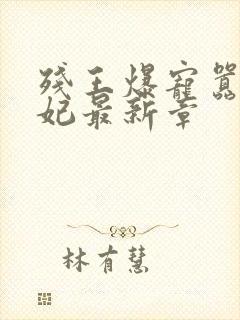 残王爆寵囂
妃最新章
林有慧